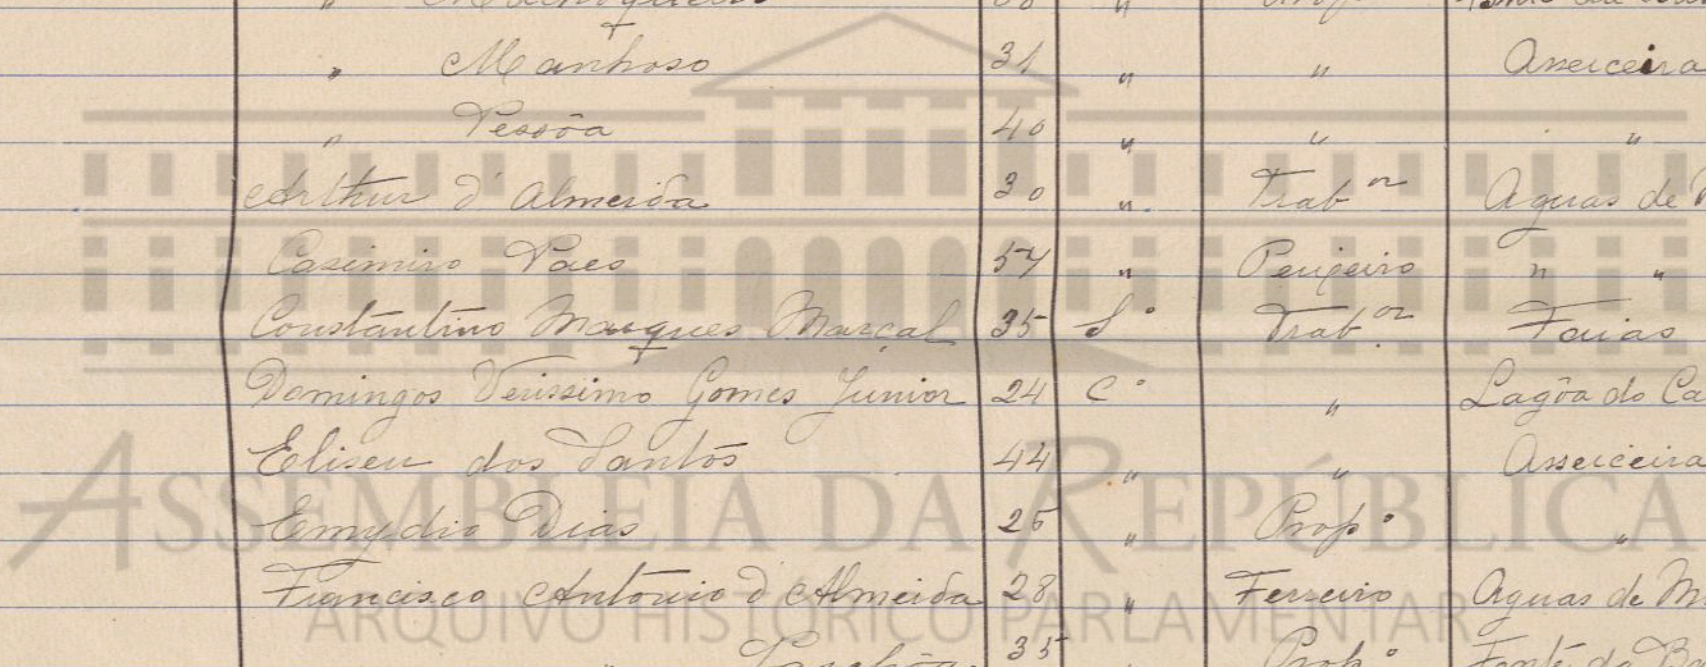 " Manhoso 31 " " Asseiceira
" Pessôa 40 " " "
Arthur d'Almeida 30 " Trab.or Aguas de
Casimiro Paes 57 " Peixeiro " "
Constantino Marques Marçal 35 S.º Trab.or Faias
Domingos Verissimo Gomes Junior 24 C.º " Lagôa do Ca
Eliseu dos Santos 44 " " Asseiceira
Emydio Dias 25 " Prop.º "
Francisco Antonio d'Almeida 28 " Ferreiro Aguas de M
" 35 " Prop.º Fonte da B
ASSEMBLEIA DA REPÚBLICA
ARQUIVO HISTÓRICO PARLAMENTAR